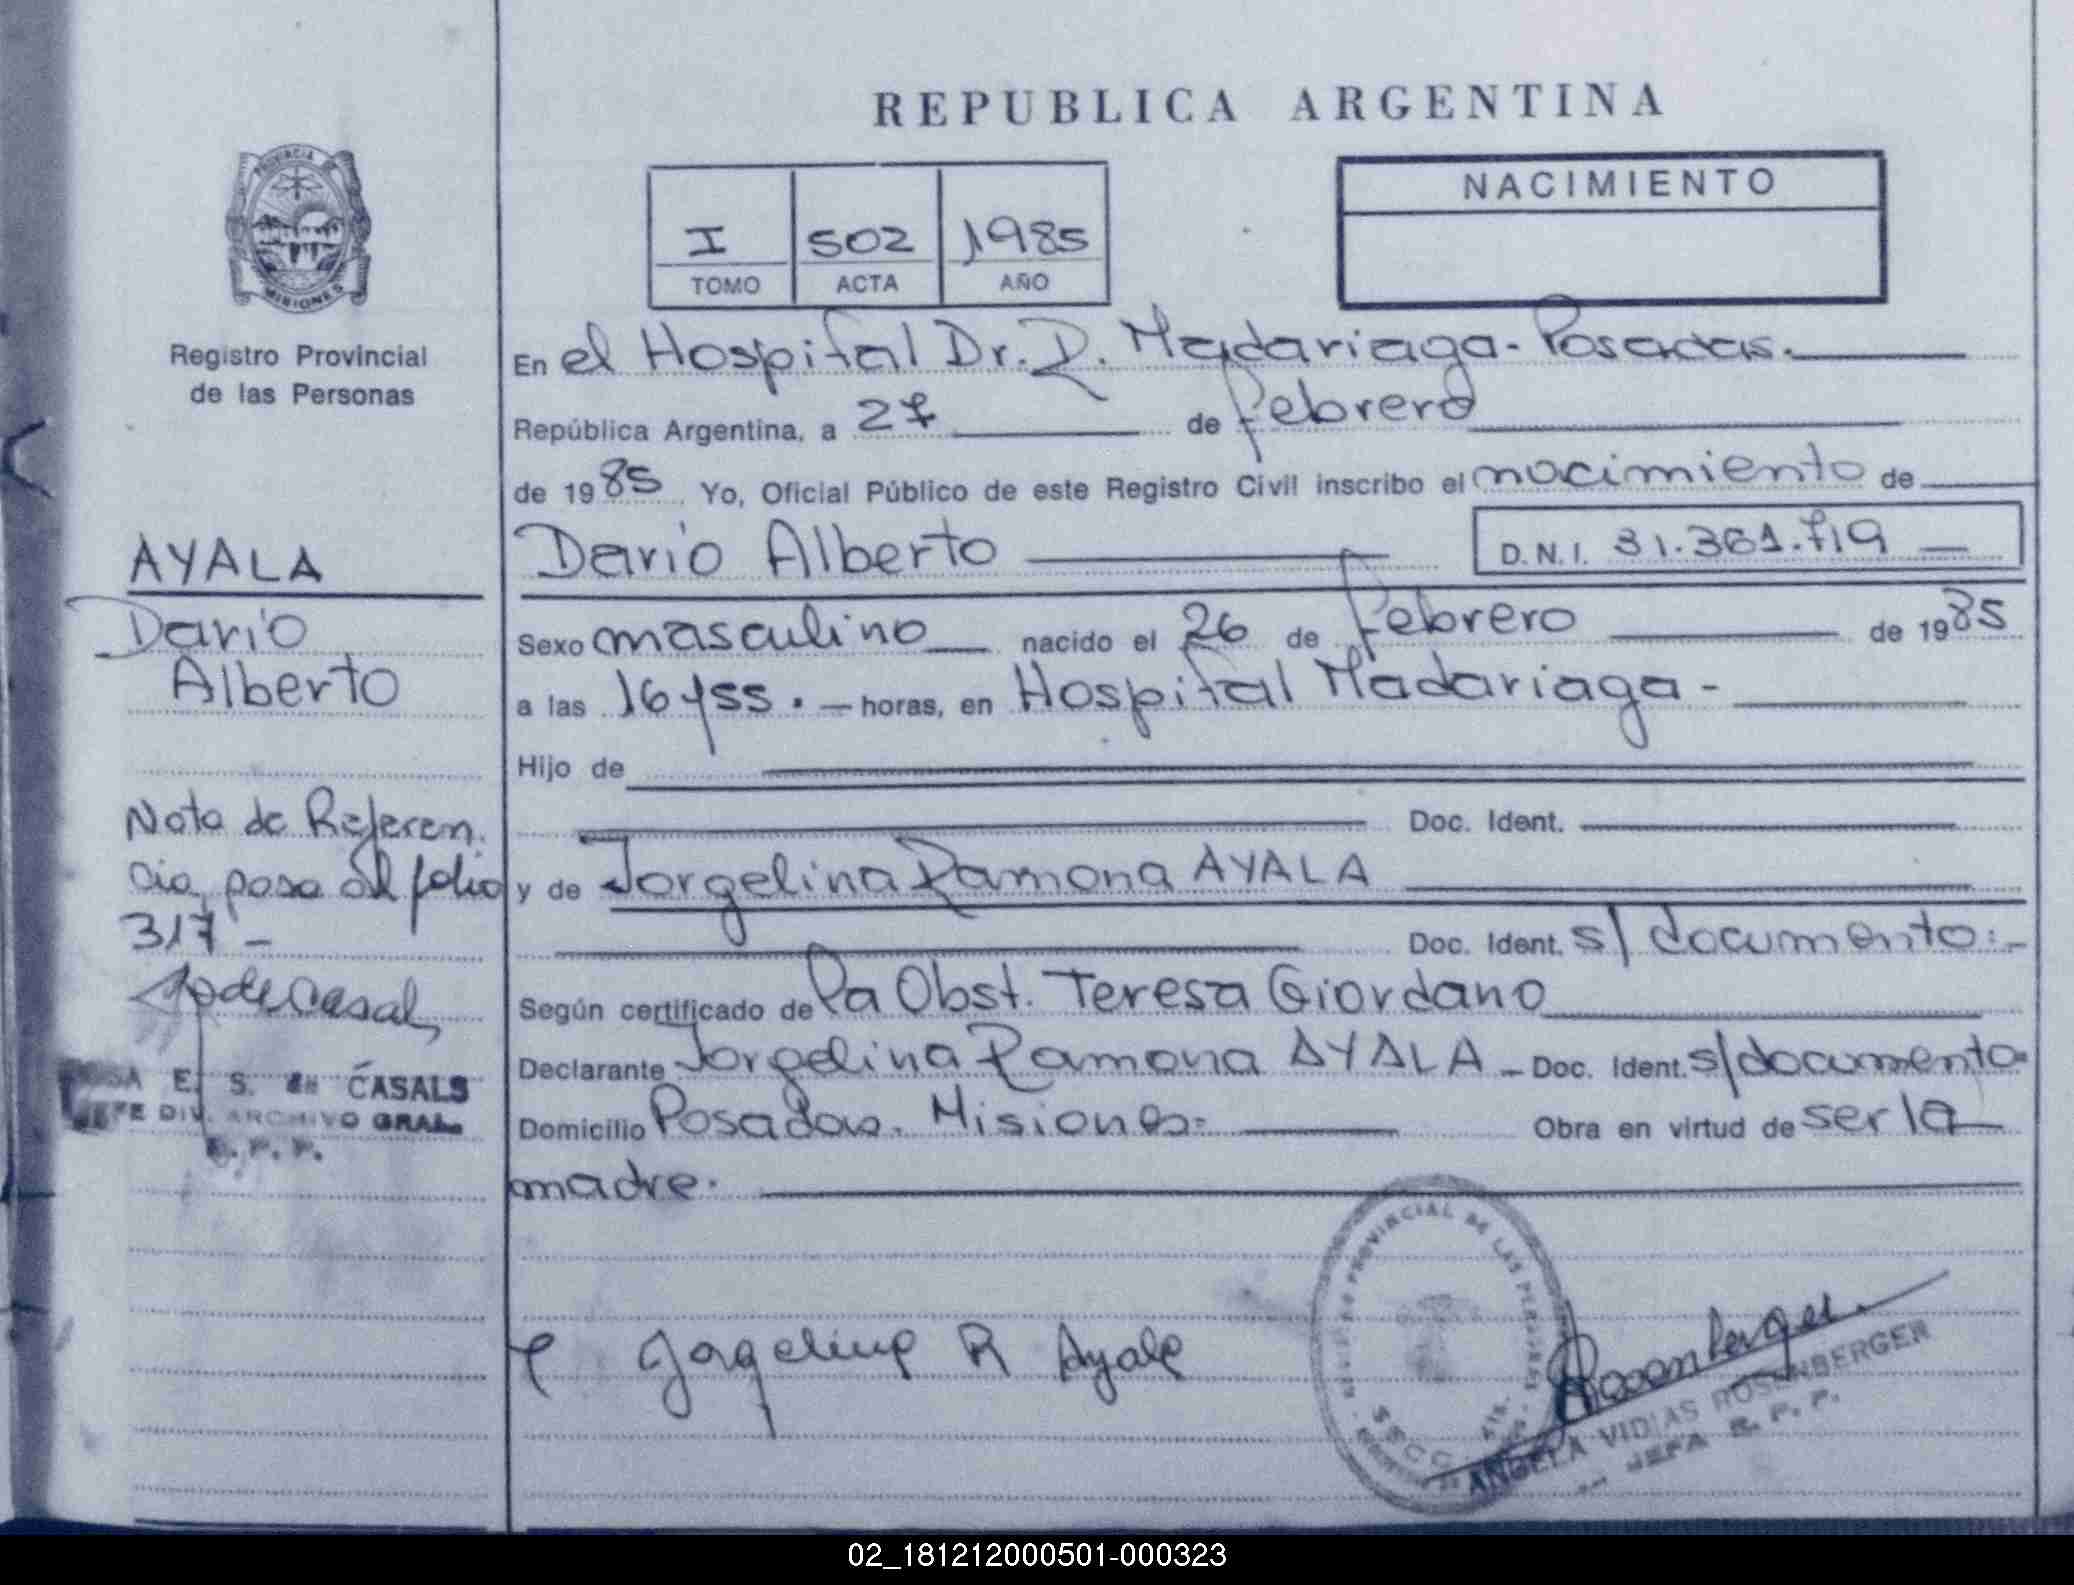 REPUBLICA ARGENTINA
PROVINCIA
MISIONES
Registro Provincial
de las Personas
I 502 1985
TOMO ACTA AÑO
NACIMIENTO
En el Hospital Dr. R. Madariaga - Posadas.
República Argentina, a 27 de febrero
de 1985 Yo, Oficial Público de este Registro Civil inscribo el nacimiento de
Dario Alberto D.N.I. 31.361.719
AYALA
Dario
Alberto
Sexo masculino nacido el 26 de febrero de 1985
a las 16 y 55. horas, en Hospital Madariaga -
Hijo de
Doc. Ident.
y de Jorgelina Ramona AYALA
Doc. Ident. s/ documento:-
Según certificado de la Obst. Teresa Giordano
Declarante Jorgelina Ramona AYALA - Doc. Ident. s/documento
Domicilio Posadas. Misiones= Obra en virtud de ser la
madre.
Nota de Referen.
cia pasa al folio
317 -
E. S. de CASALS
JEFE DIV. ARCHIVO GRAL.
R. P. P.
Jorgelina R Ayala
PROVINCIAL DE LAS PERSONAS
Rosenberger
ANGELA VIDIAS ROSENBERGER
JEFA R. P. P.
02_181212000501-000323